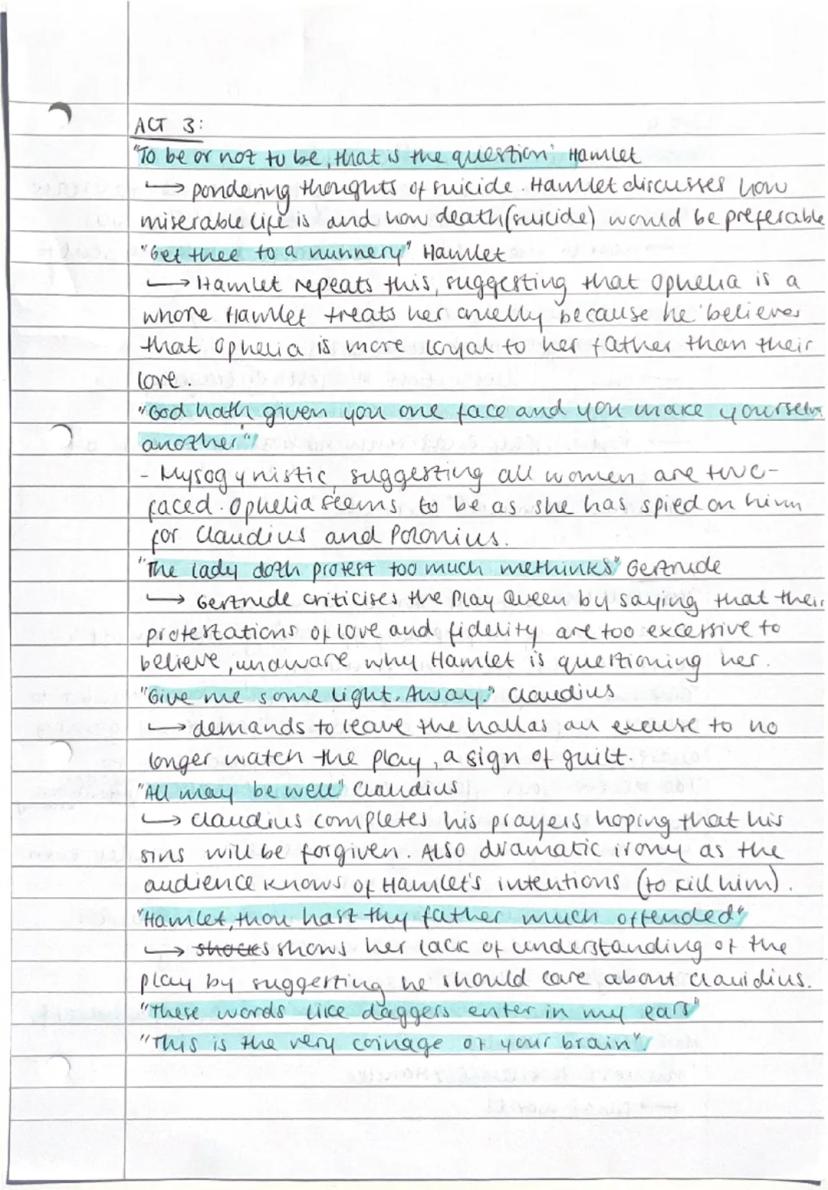 ACT 3:
"To be or not to be, that is the question" Hamlet
→ pondering thoughts of suicide. Hamlet discusses how
miserable life is and how death (suicide) would be preferable
"Get thee to a nunnery" Hamlet
→ Hamlet repeats this, suggesting that Ophelia is a
whore Hamlet treats her cruelly because he believes
that Ophelia is more loyal to her father than their
love.
"God hath given you one face and you make yourselves
another"
- Mysogynistic, suggesting all women are two-
faced. Ophelia seems to be as she has spied on him
for Claudius and Polonius.
"The lady doth protest too much methinks" Gertrude
→ Gertrude criticises the Play Queen by saying that their
protestations of love and fidelity are too excessive to
believe, unaware why Hamlet is questioning her.
"Give me some light. Away." Claudius
→ demands to leave the hall as an excuse to no
longer watch the play, a sign of guilt.
"All may be well" Claudius
→ Claudius completes his prayers hoping that his
sins will be forgiven. Also dramatic irony as the
audience knows of Hamlet's intentions (to kill him).
"Hamlet, thou hast thy father much offended"
→ shocks shows her lack of understanding of the
play by suggesting he should care about Clauidius.
"These words like daggers enter in my ears"
"This is the very coinage of your brain"